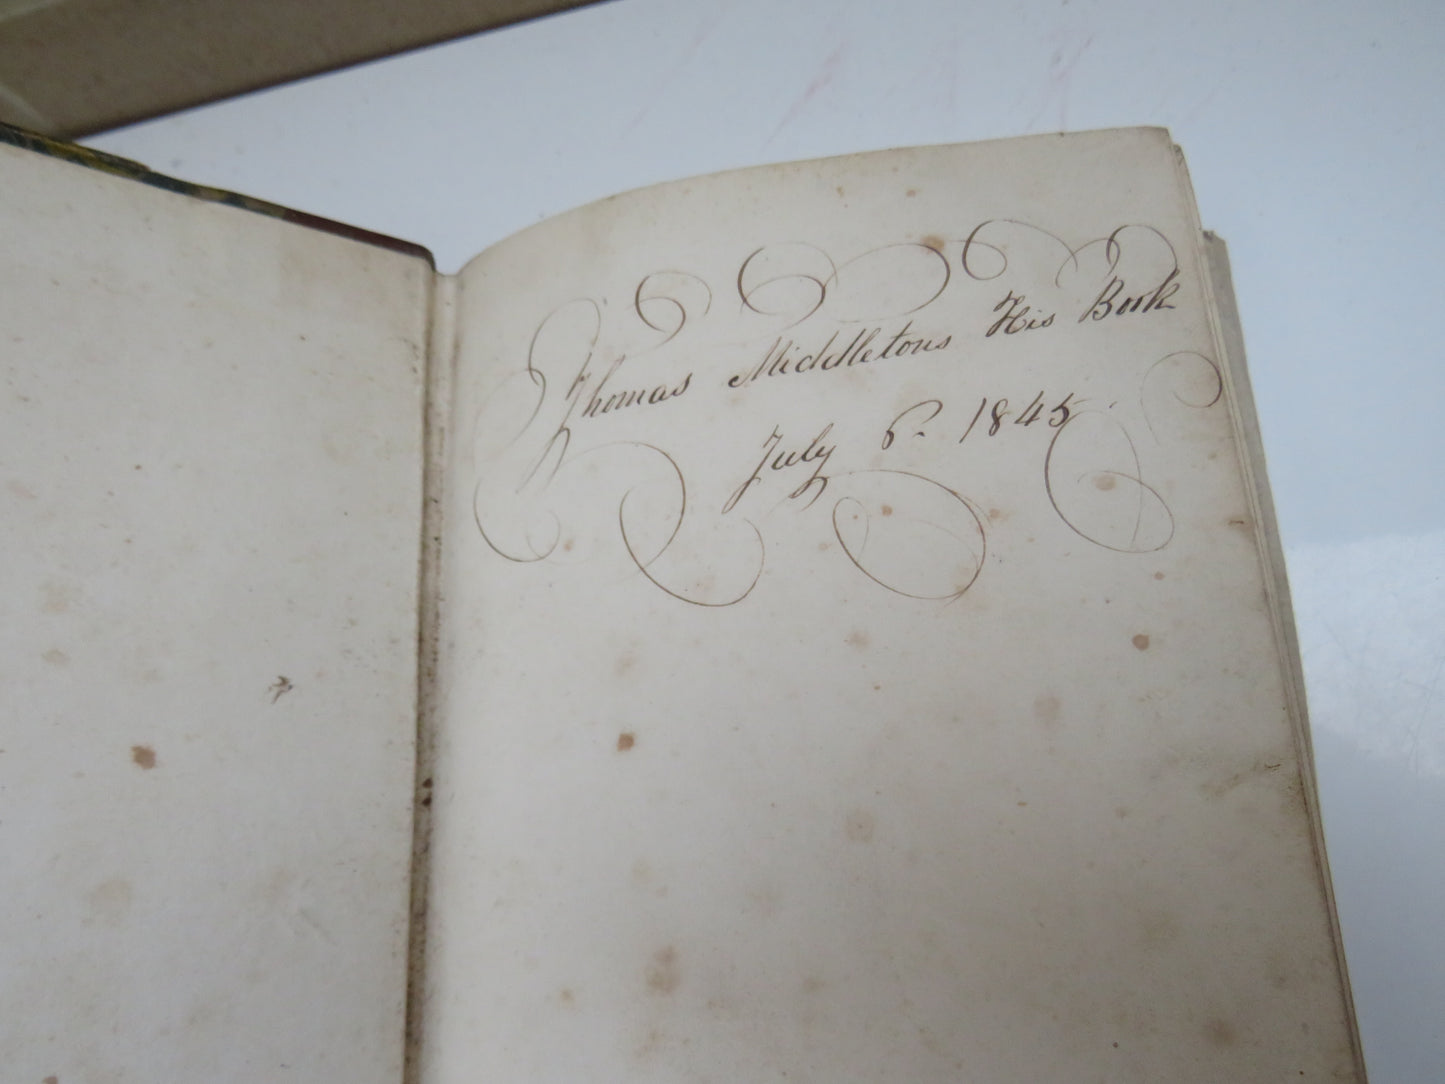 Thomas Middletons His Book
July 6. 1845